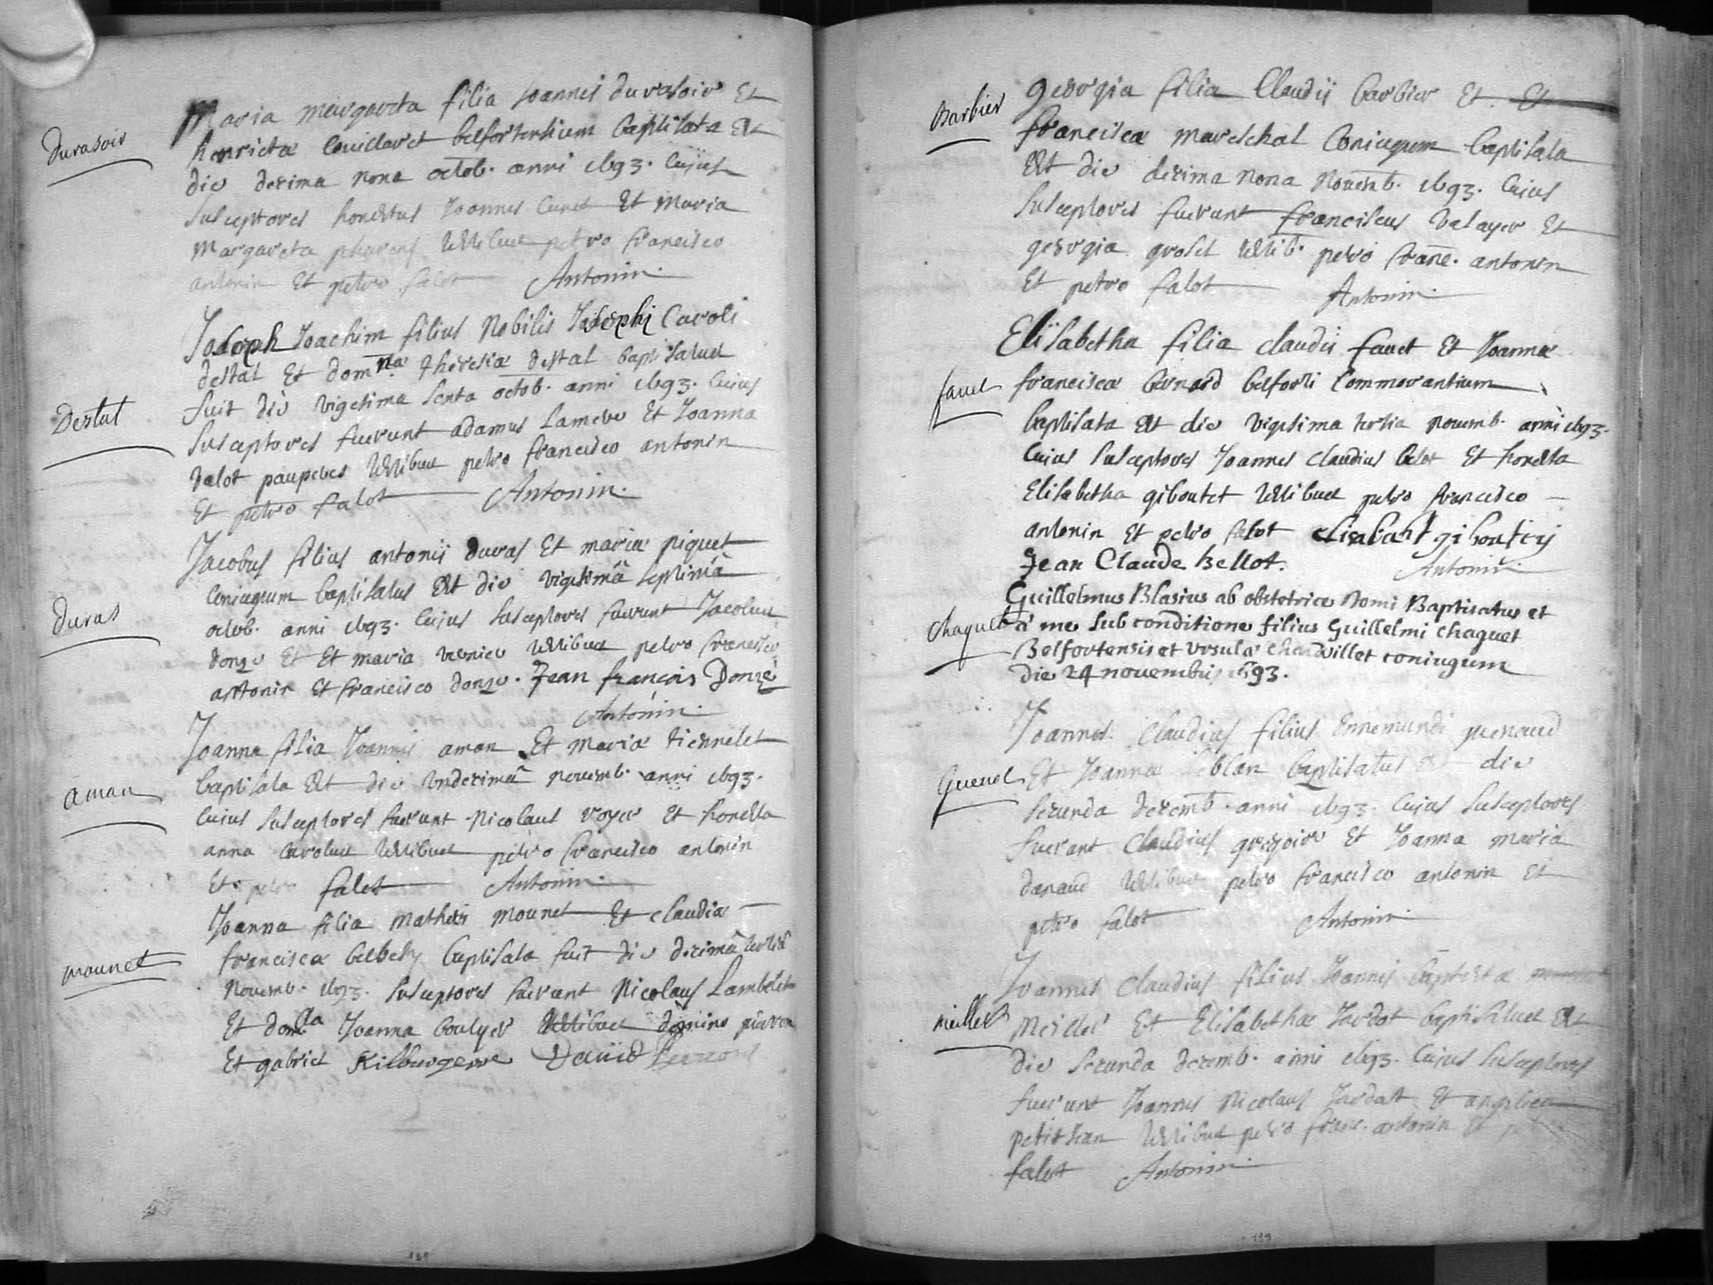 Durasoir
Maria margareta filia Joannis durasoir Et
henricæ Couiclaret belfortensium baptisata Est
die decima nona octob. anni 1693. Cuius
susceptores honestus Joannes Curet Et Maria
Margareta testibus petro francisco
antonin Et petro falot Antonin.
Destal
Joseph Joachim filius Nobilis Josephi Caroli
destal Et domnæ theresiæ destal baptisatus
fuit die vigesima sexta octob. anni 1693. Cuius
susceptores fuerunt adamus Lamere Et Joanna
valot pauperes testibus petro francisco antonin
Et petro falot Antonin.
Duras
Jacobus filius antonii duras Et mariæ piquet
Coniugum baptisatus Est die vigesimâ septimâ
octob. anni 1693. Cuius susceptores fuerunt Jacobus
donze Et Et maria vernier testibus petro francisco
antonin Et francisco donze. Jean françois Donzé
Antonin.
aman
Joanna filia Joannis aman Et mariæ tiennelet
baptisata Est die undecimâ novemb. anni 1693.
Cuius susceptores fuerunt Nicolaus voyer Et honesta
anna testibus petro francisco antonin
Et petro falot Antonin.
mounet
Joanna filia Matheis mounet Et claudiæ
franciscæ belbety baptisata fuit die decimâ tertiâ
Novemb. 1693. susceptores fuerunt Nicolaus Lambelet
Et domla Joanna boulyer testibus domino piaron
Et gabriel Kilburgerre David
Barbier
georgia filia Claudii barbier Et Et
franciscæ mareschal Coniugum baptisata
Est die decima nona Novemb. 1693. Cuius
susceptores fuerunt franciscus valayer Et
georgia grosel testib. petro franc. antonin
Et petro falot Antonin.
favet
Elisabetha filia claudii favet Et Joannæ
franciscæ bernard belforti Commorantium
baptisata Est die vigesima tertia novemb. anni 1693.
Cuius susceptores Joannes Claudius belot Et honesta
Elisabetha giboutet testibus petro francisco
antonin Et petro falot Elisabaht giboutey
Jean Claude Bellot. Antonin.
Chaquet
Guillelmus Blasius ab obstetrice domi Baptisatus et
a me sub conditione filius Guillelmi chaquet
Belfortensis et ursulæ chardvillet coniugum
die 24 novembris 1693.
Guenol
Joannes Claudius filius Ennemundi guenaud
Et Joannæ leblan baptisatus Est die
secunda decemb. anni 1693. Cuius susceptores
fuerunt Claudius gregoire Et Joanna maria
danaud testibus petro francisco antonin Et
petro falot Antonin.
Meillet
Joannes Claudius filius Joannis baptistæ
Meillet Et Elisabethæ Jardot baptisatus Est
die secunda decemb. anni 1693. Cuius susceptores
fuerunt Joannes Nicolaus Jardot Et angelica
petitJean testibus petro franc. antonin Et
falot Antonin.